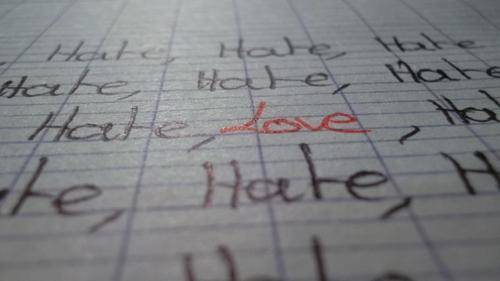 , Hate, Hate, Hate
Hate, Hate, Hate
Hate, Love, Ha
te, Hate, H
Hate